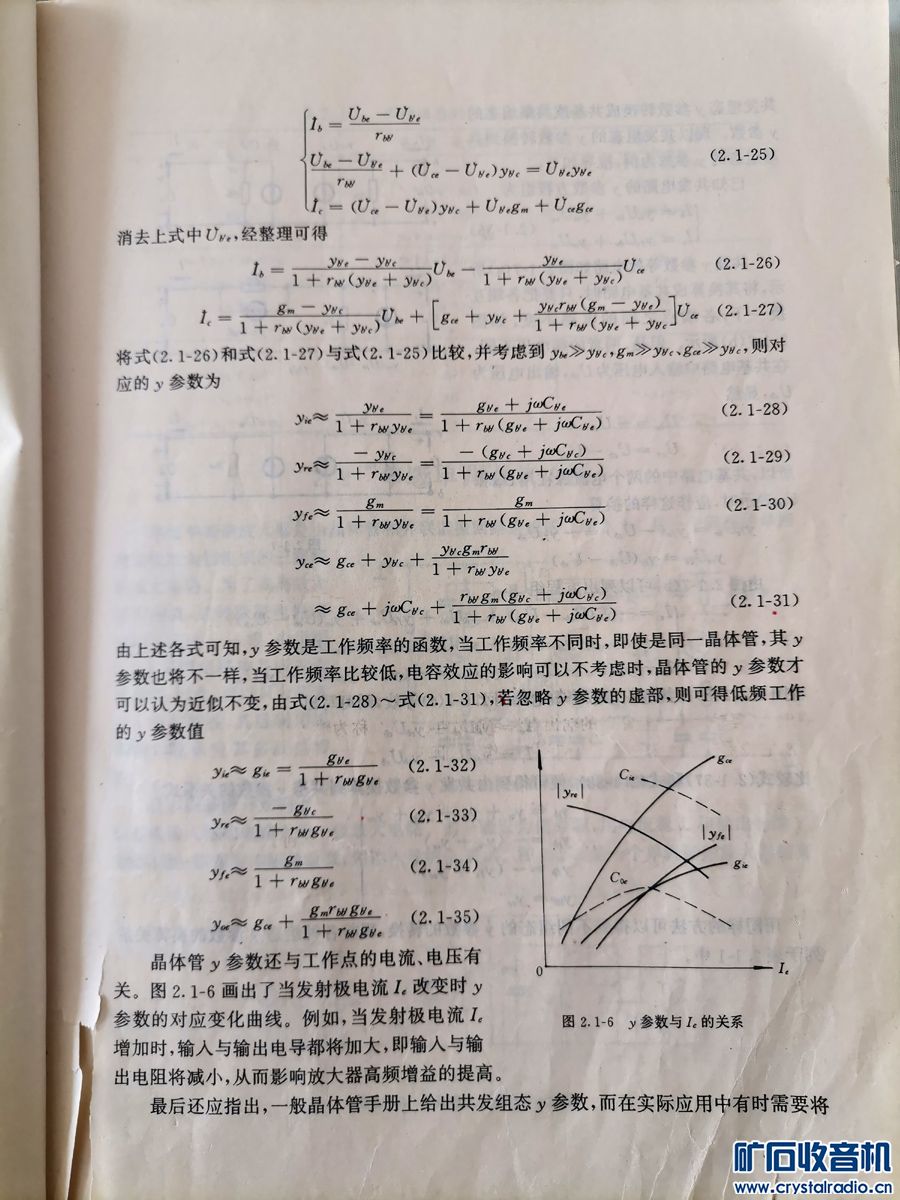 İ_b = (U̇_be − U̇_b′e) / r_bb′
(U̇_be − U̇_b′e) / r_bb′ + (U̇_ce − U̇_b′e)y_b′c = U̇_b′e y_b′e (2.1-25)
İ_c = (U̇_ce − U̇_b′e)y_b′c + U̇_b′e g_m + U̇_ce g_ce
消去上式中U̇_b′e,经整理可得
İ_b = (y_b′e − y_b′c) / (1 + r_bb′(y_b′e + y_b′c)) U̇_be − y_b′e / (1 + r_bb′(y_b′e + y_b′c)) U̇_ce (2.1-26)
İ_c = (g_m − y_b′c) / (1 + r_bb′(y_b′e + y_b′c)) U̇_be + [g_ce + y_b′c + y_b′c r_bb′(g_m − y_b′e) / (1 + r_bb′(y_b′e + y_b′c)] U̇_ce (2.1-27)
将式(2.1-26)和式(2.1-27)与式(2.1-25)比较,并考虑到 y_be≫y_b′c,g_m≫y_b′c、g_ce≫y_b′c,则对
应的 y 参数为
y_ie≈ y_b′e / (1 + r_bb′ y_b′e) = (g_b′e + jωC_b′e) / (1 + r_bb′(g_b′e + jωC_b′e)) (2.1-28)
y_re≈ − y_b′c / (1 + r_bb′ y_b′e) = − (g_b′c + jωC_b′c) / (1 + r_bb′(g_b′e + jωC_b′e)) (2.1-29)
y_fe≈ g_m / (1 + r_bb′ y_b′e) = g_m / (1 + r_bb′(g_b′e + jωC_b′e)) (2.1-30)
y_ce≈ g_ce + y_b′c + y_b′c g_m r_bb′ / (1 + r_bb′ y_b′e)
≈ g_ce + jωC_b′c + r_bb′ g_m(g_b′c + jωC_b′c) / (1 + r_bb′(g_b′e + jωC_b′e)) (2.1-31)
由上述各式可知,y 参数是工作频率的函数,当工作频率不同时,即使是同一晶体管,其 y
参数也将不一样,当工作频率比较低,电容效应的影响可以不考虑时,晶体管的 y 参数才
可以认为近似不变,由式(2.1-28)～式(2.1-31),若忽略 y 参数的虚部,则可得低频工作
的 y 参数值
y_ie≈ g_ie = g_b′e / (1 + r_bb′ g_b′e) (2.1-32)
y_re≈ − g_b′c / (1 + r_bb′ g_b′e) (2.1-33)
y_fe≈ g_m / (1 + r_bb′ g_b′e) (2.1-34)
y_oe≈ g_ce + g_m r_bb′ g_b′e / (1 + r_bb′ g_b′e) (2.1-35)
晶体管 y 参数还与工作点的电流、电压有
关。图 2.1-6 画出了当发射极电流 I_e 改变时 y
参数的对应变化曲线。例如,当发射极电流 I_e
增加时,输入与输出电导都将加大,即输入与输
出电阻将减小,从而影响放大器高频增益的提高。
g_ce
C_ie
|y_re|
|y_fe|
g_ie
C_oe
0
I_e
图 2.1-6 y 参数与 I_e 的关系
最后还应指出,一般晶体管手册上给出共发组态 y 参数,而在实际应用中有时需要将
矿石收音机
www.crystalradio.cn